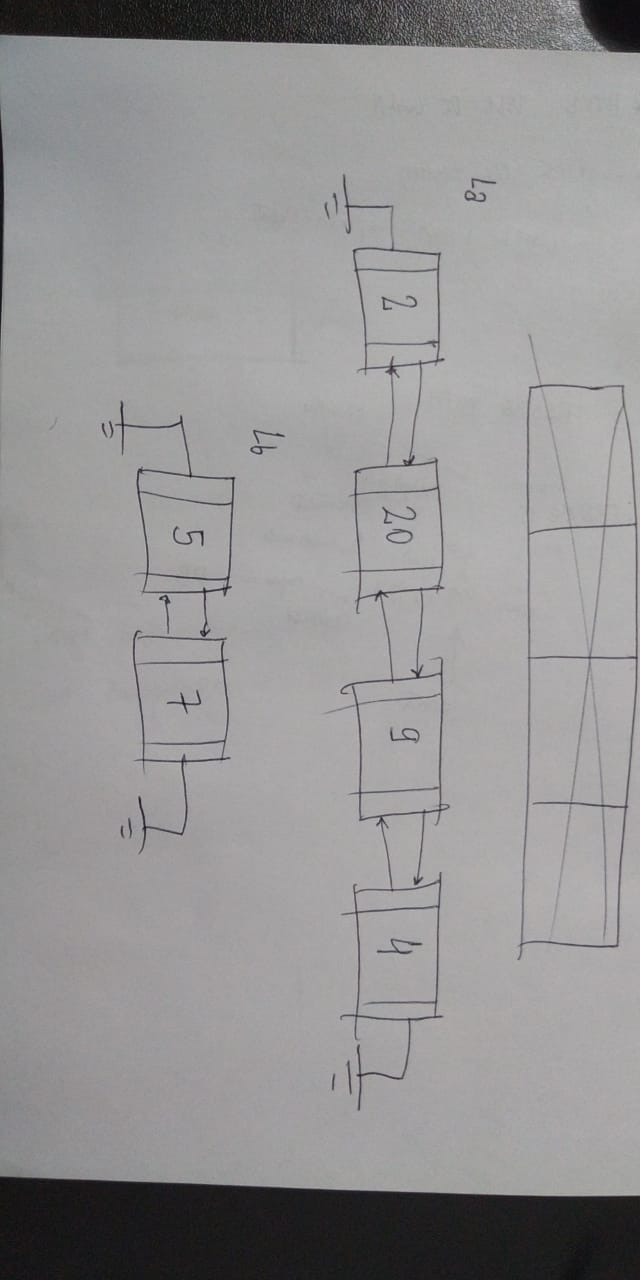 La
2 20 9 4
Lb
5 7